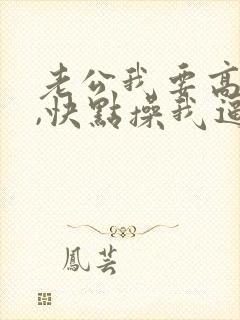 老公我要高
,快點操我逼
鳳芸